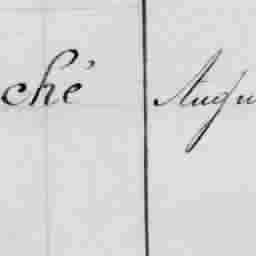 ché Augu